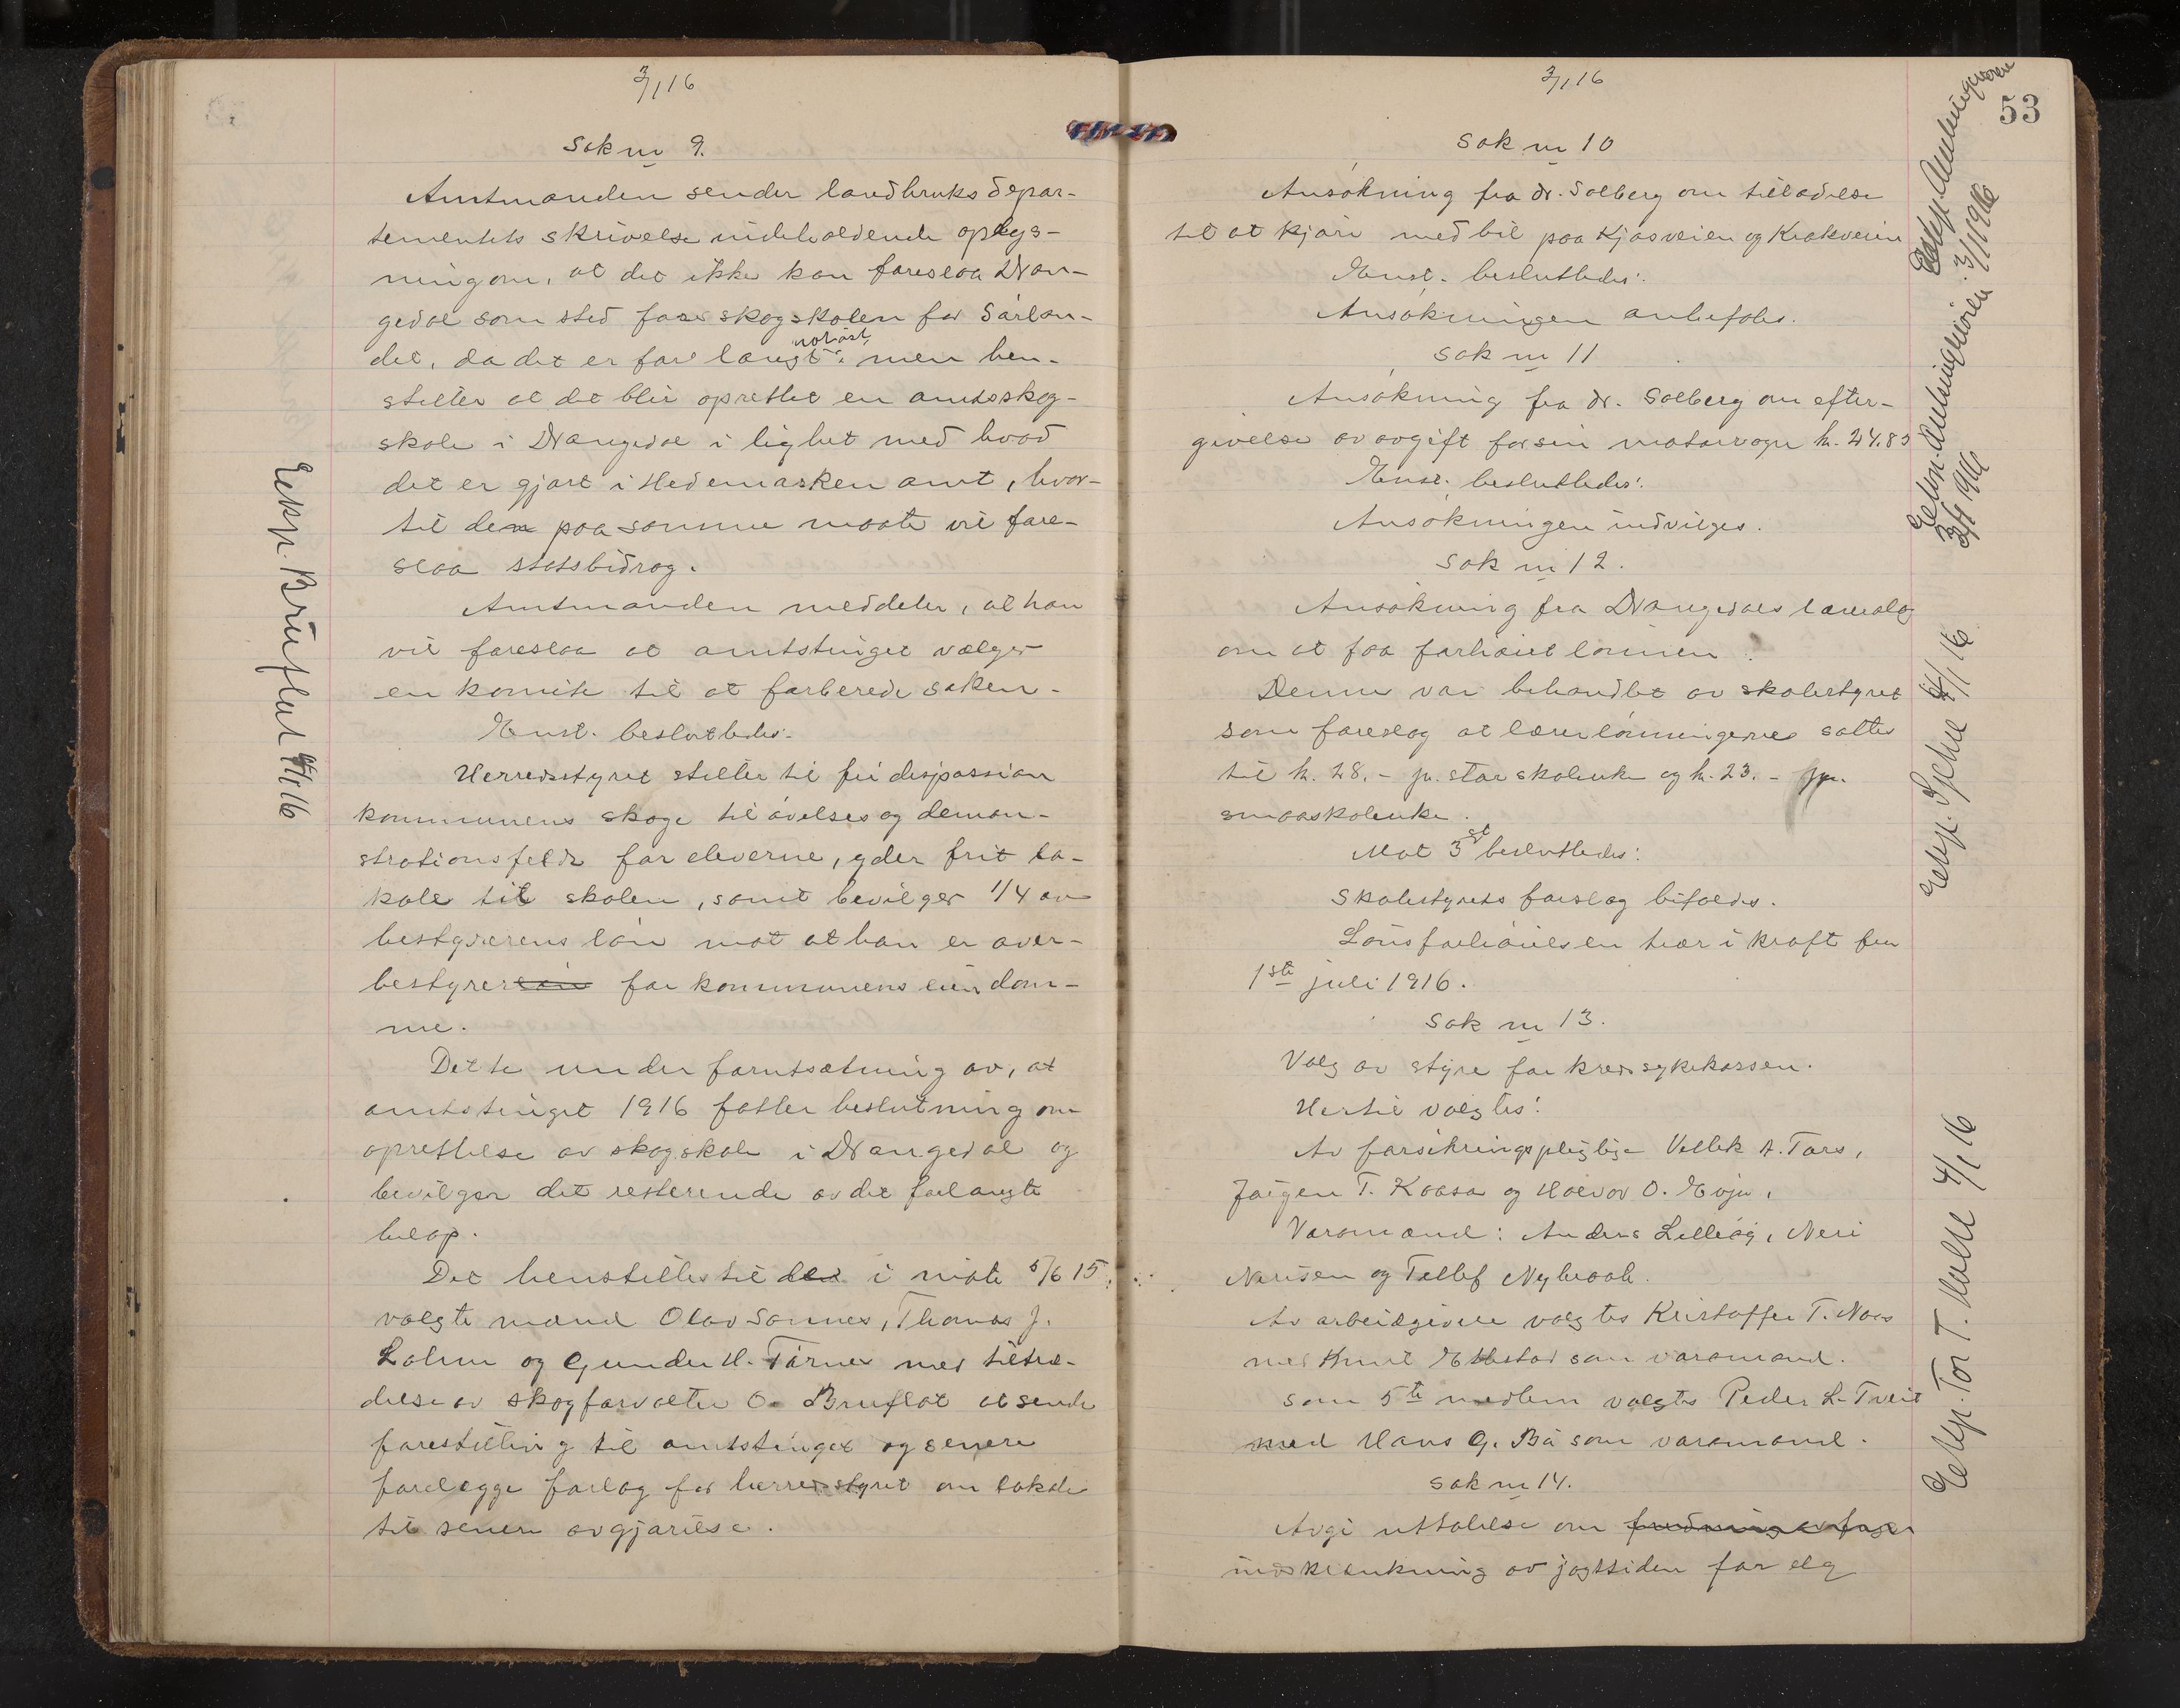 3/1 16
Sak nr 9.
Amtmanden sender landbruksdepar-
tementets skrivelse indeholdende oplys-
ning om, at det ikke kan foreslaa Dran-
gedal som sted for skogskolen for Sørlan-
det, da det er for langt nordøst, men hen-
stiller at det blir oprettet en amtsskog-
skole i Drangedal i lighet med hvad
det er gjort i Hedemarken amt, hvor-
til den paa samme maate vil fore-
slaa statsbidrag.
Amtmanden meddeler, at han
vil foreslaa at amtstinget vælger
en komite til at forberede saken.
Enst. beslutledes:
Herredsstyret stiller til fri disposision
kommunens skoge til øvelses og demon-
strationsfeldt for eleverne, yder frit lo-
kale til skolen, samt bevilger 1/4 av
bestyrerens løn mot at han er over-
bestyrer for kommunens eiendom-
me.
Dette under forutsætning av, at
amtstinget 1916 fatter beslutning om
oprettelse av skogskole i Drangedal og
bevilger det resterende av det forlangte
beløp.
Det henstilles til de i møte 5/6 15
valgte mænd Olav Sannes, Thomas J.
Lohne og Gunder H. Tørnes med tiltræ-
delse av skogforvalter O. Bruflat at sende
forestilling til amtstinget og senere
forelægge forslag for herredsstyret om lokale
til senere avgjørelse.
Eksp. Bruflat 4/1 16
3/1 16
53
Sak nr 10
Ansøkning fra dr. Solberg om tilladelse
til at kjøre med bil paa Kjøsveien og Krokveien
Enst. beslutledes:
Ansøkningen anbefales.
Sak nr 11
Ansøkning fra dr. Solberg om efter-
givelse av avgift for sin motorvogn kr. 24.83
Enst. beslutledes:
Ansøkningen indvilges.
Sak nr 12.
Ansøkning fra Drangedals lærerlag
om at faa forhøiet lønnen.
Denne var behandlet av skolestyret
som foreslog at lærerlønningerne sattes
til kr. 28.- pr. storskoleuke og kr. 23.- pr.
smaaskoleuke.
Mot 3 st beslutledes:
Skolestyrets forslag bifaldes.
Lønsforhøielsen træer i kraft fra
1ste juli 1916.
Sak nr 13.
Valg av styre for kredssykekassen.
Hertil valgtes:
Av forsikringspligtige Vetlek A. Tors,
Jørgen T. Kaasa og Halvor O. Evju,
Varamænd: Anders Lilleøig, Neri
Nerisen og Tellef Nybraak.
Av arbeidsgivere valgtes Kristoffer T. Naas
med Knut Ettestad som varamand.
Som 5te medlem valgtes Peder L. Tveit
med Hans G. Bø som varamand.
Sak nr 14.
Avgi uttalelse om
indskrænkning av jagttiden for elg
Eksp. Amtsingeniøren 3/1 1916
Eksp. Amtsingeniøren 3/1 1916
Eksp. 4/1 16
Eksp. Tor T. 4/1 16